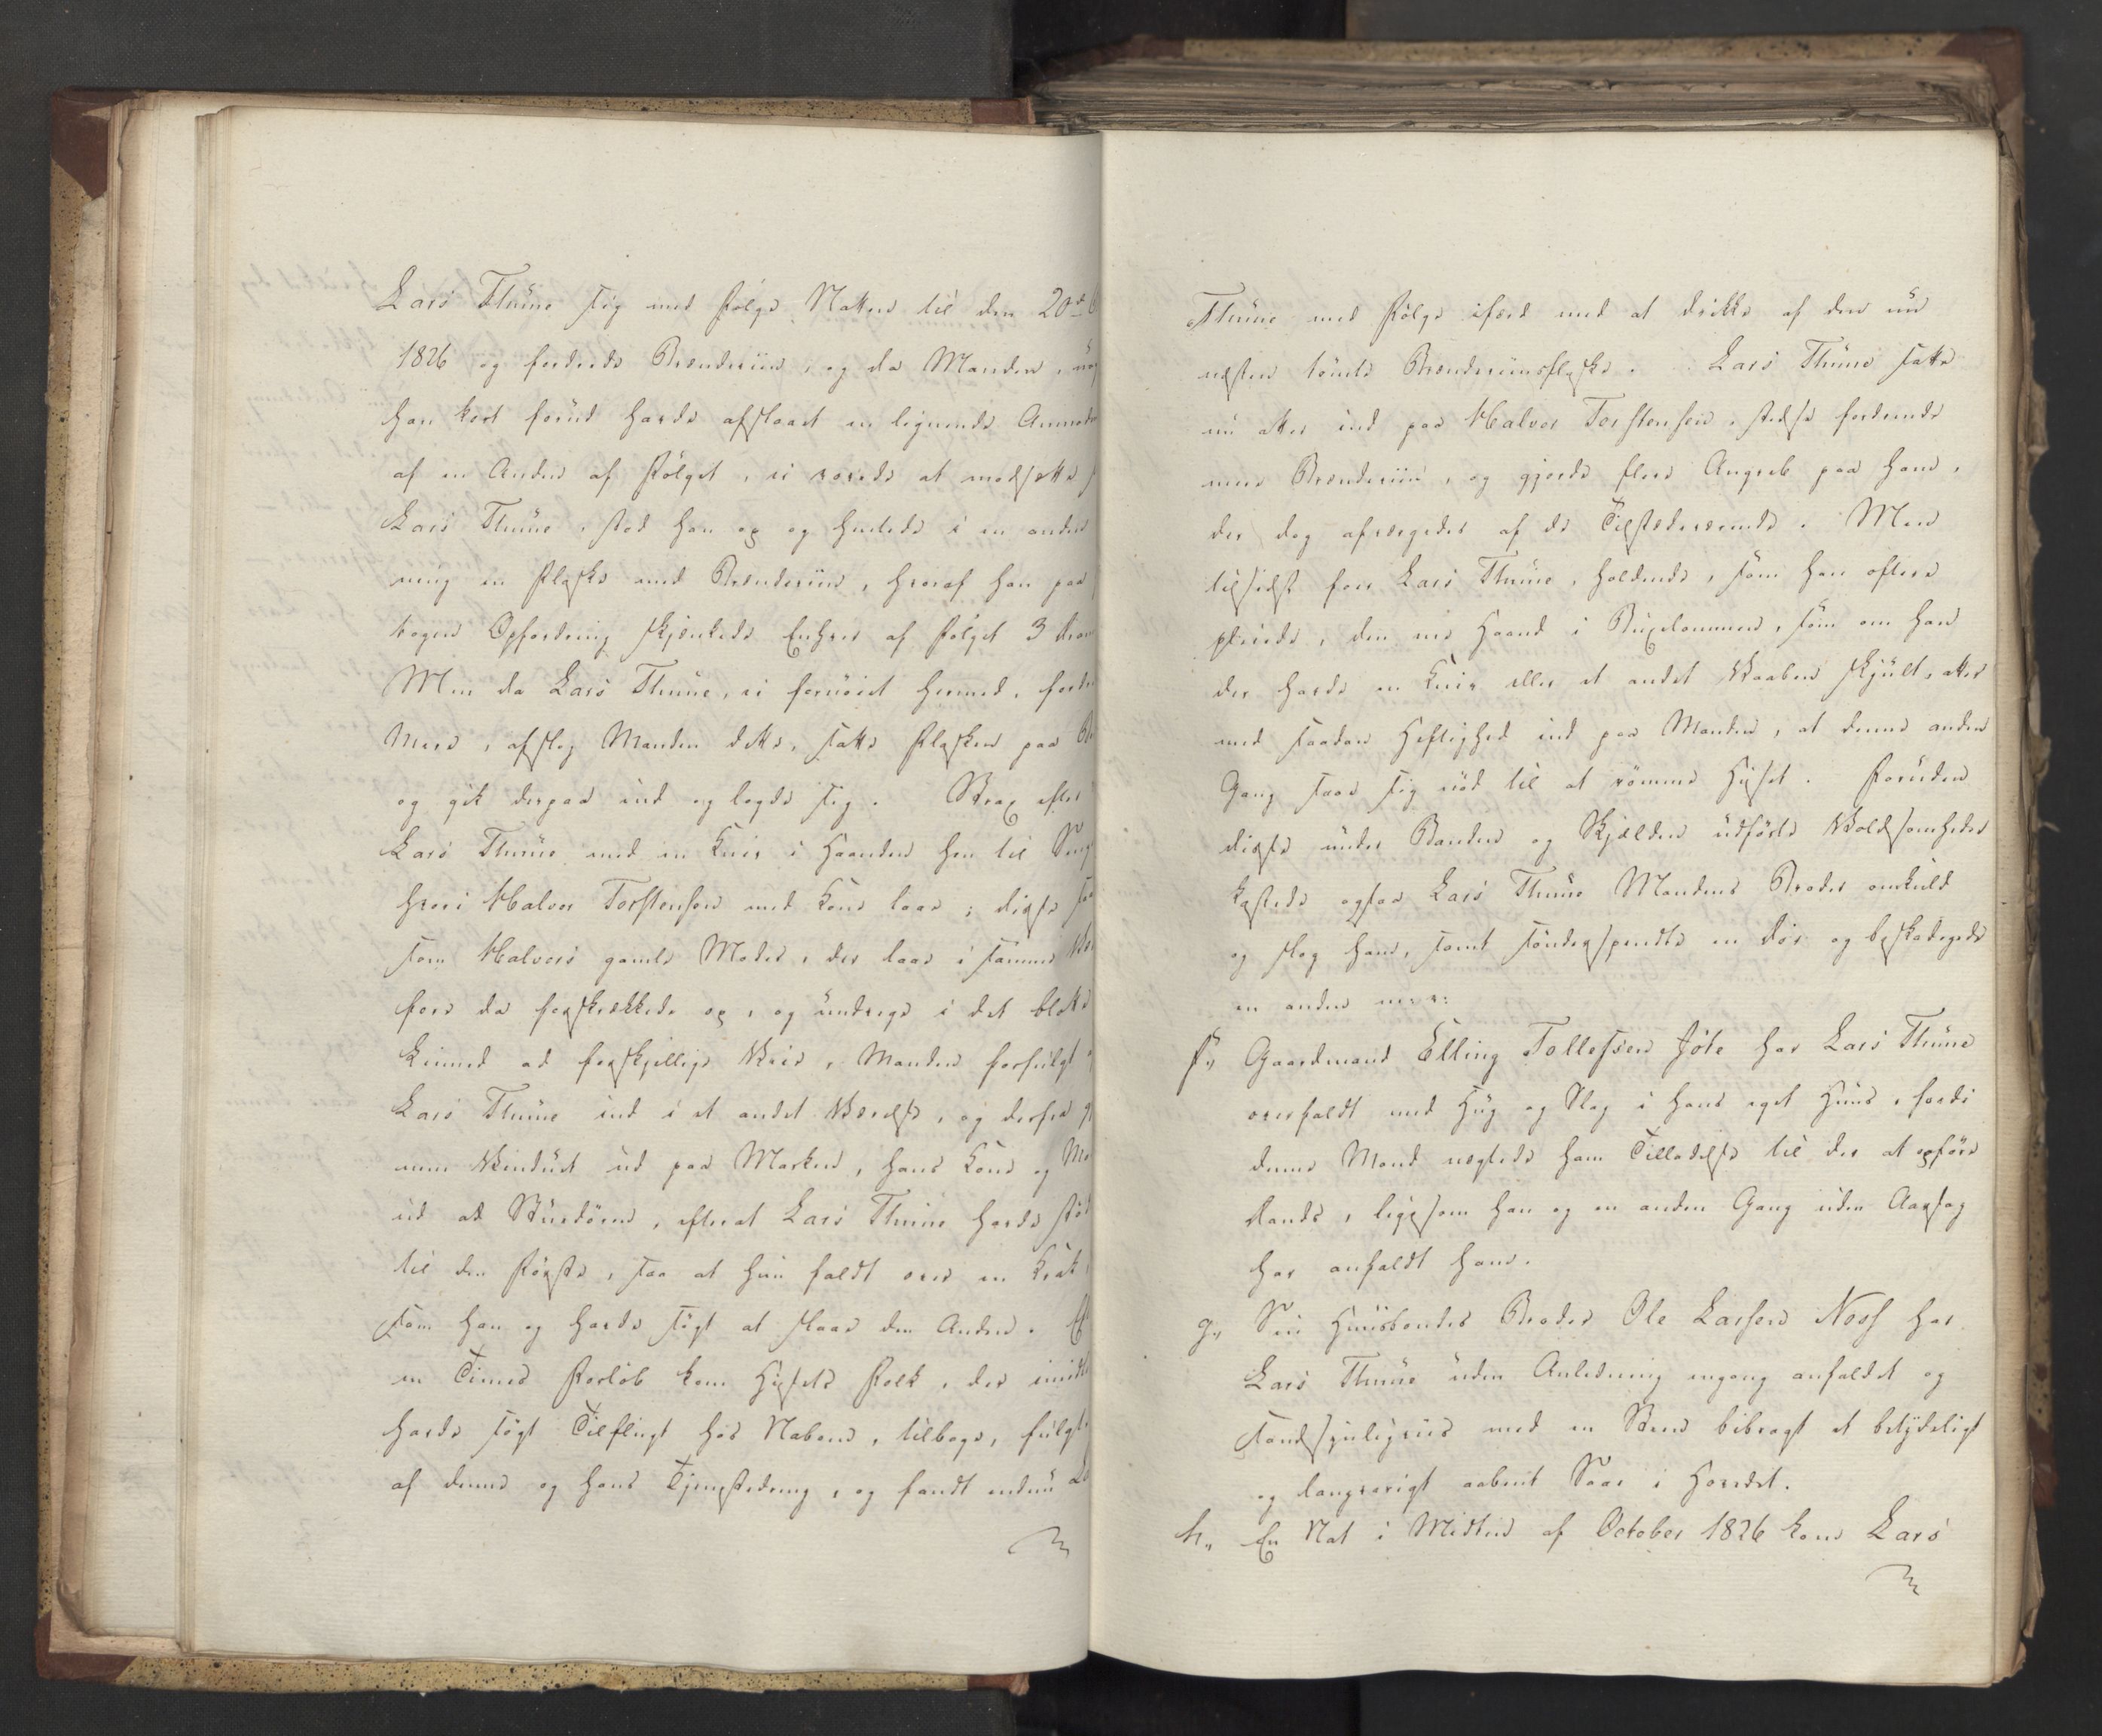 Lars Thune sig med Følge Natten til den 20de
1826 og fordrede Brændeviin, og da Manden,
han kort forud havde afslaaet en lignende
af en Anden af Følget, ei vovede at modsætte
Lars Thune, stod han op og hentede i en anden
ning en Flaske med Brændeviin, hvoraf han paa
tagen Opfordring skjænkede Enhver af Følget 3
Men da Lars Thune, ei fornøiet hermed,
Mere, afslog Manden dette, satte Flasken paa
og gik derpaa ind og lagde sig. Strax efter
Lars Thune med en Kniv i Haanden hen til
hvori Halvor Torstensen med Kone laae; disse
som Halvors gamle Moder, der laae i samme
foer da forskrækkede op, og undvege i det blotte
Linned ad forskjellige Veie, Manden forfulgt
Lars Thune ind i et andet Værelse, og derfra
nem Vinduet ud paa Marken, hans Kone og
ud ad Stuedøren, efterat Lars Thune havde
til den Første, saa at hun faldt over en Krak,
som han og havde søgt at slaae den Anden.
en Times Forløb kom Husets Folk, der
havde søgt Tilflugt hos Naboen, tilbage, fulgt
af denne og hans Tjenestedreng, og fandt endnu
Thune med Følge ifærd med at drikke af den nu
næsten tømte Brændeviinsflaske. Lars Thune satte
nu atter ind paa Halvor Torstensen, stedse fordrende
mere Brændeviin, og gjorde flere Angreb paa ham,
der dog afværgedes af de Tilstedeværende. Men
tilsidst foer Lars Thune, holdende, som han oftere
pleiede, den ene Haand i Buxelommen, som om han
der havde en Kniv eller et andet Vaaben skjult, atter
med saadan Heftighed ind paa Manden, at denne anden
Gang saae sig nød til at rømme Huset. Foruden
disse under Banden og Skjælden udførte Voldsomheder
kastede ogsaa Lars Thune Mandens Broder omkuld
og slog ham, samt sønderspendte en Dør og beskadigede
en anden m: v:
f,, Gaardmand Elling Tollefsen Jôte har Lars Thune
overfaldt med Hug og Slag i hans eget Huus, fordi
denne Mand nægtede ham Tilladelse til der at opføre
Dands, ligesom han og en anden Gang uden Aarsag
har anfaldt ham.
g,, Sin Huusbondes Broder Ole Larsen Ness har
Lars Thune uden Anledning engang anfaldet og
sandsynligviis med en Steen bibragt et betydeligt
og langvarigt aabent Saar i Hovedet.
h,, En Nat i Midten af October 1826 kom Lars